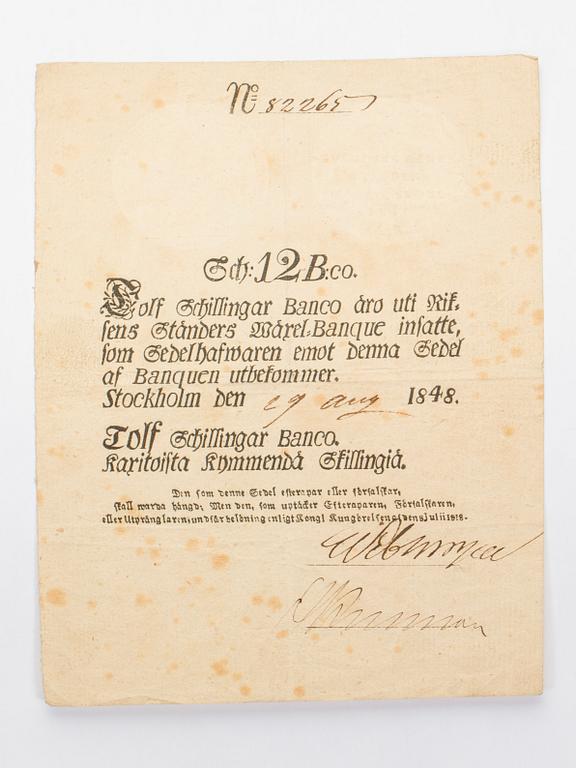 No 82265
Sch: 12 B:co.
Tolf Schillingar Banco äro uti Rik-
sens Ständers Wäxel-Banque insatte,
som Sedelhafwaren emot denna Sedel
af Banquen utbekommer.
Stockholm den 29 aug 1848.
Tolf Schillingar Banco.
Kaxitoista Kymmendä Skillingiä.
Den som denne Sedel efterapar eller förfalskar,
skall warda hängd; Men den, som uptäcker Efteraparen, Förfalskaren,
eller Utpränglaren, undfår belöning enligt Kongl Kungörelsen af den Julii 1818.